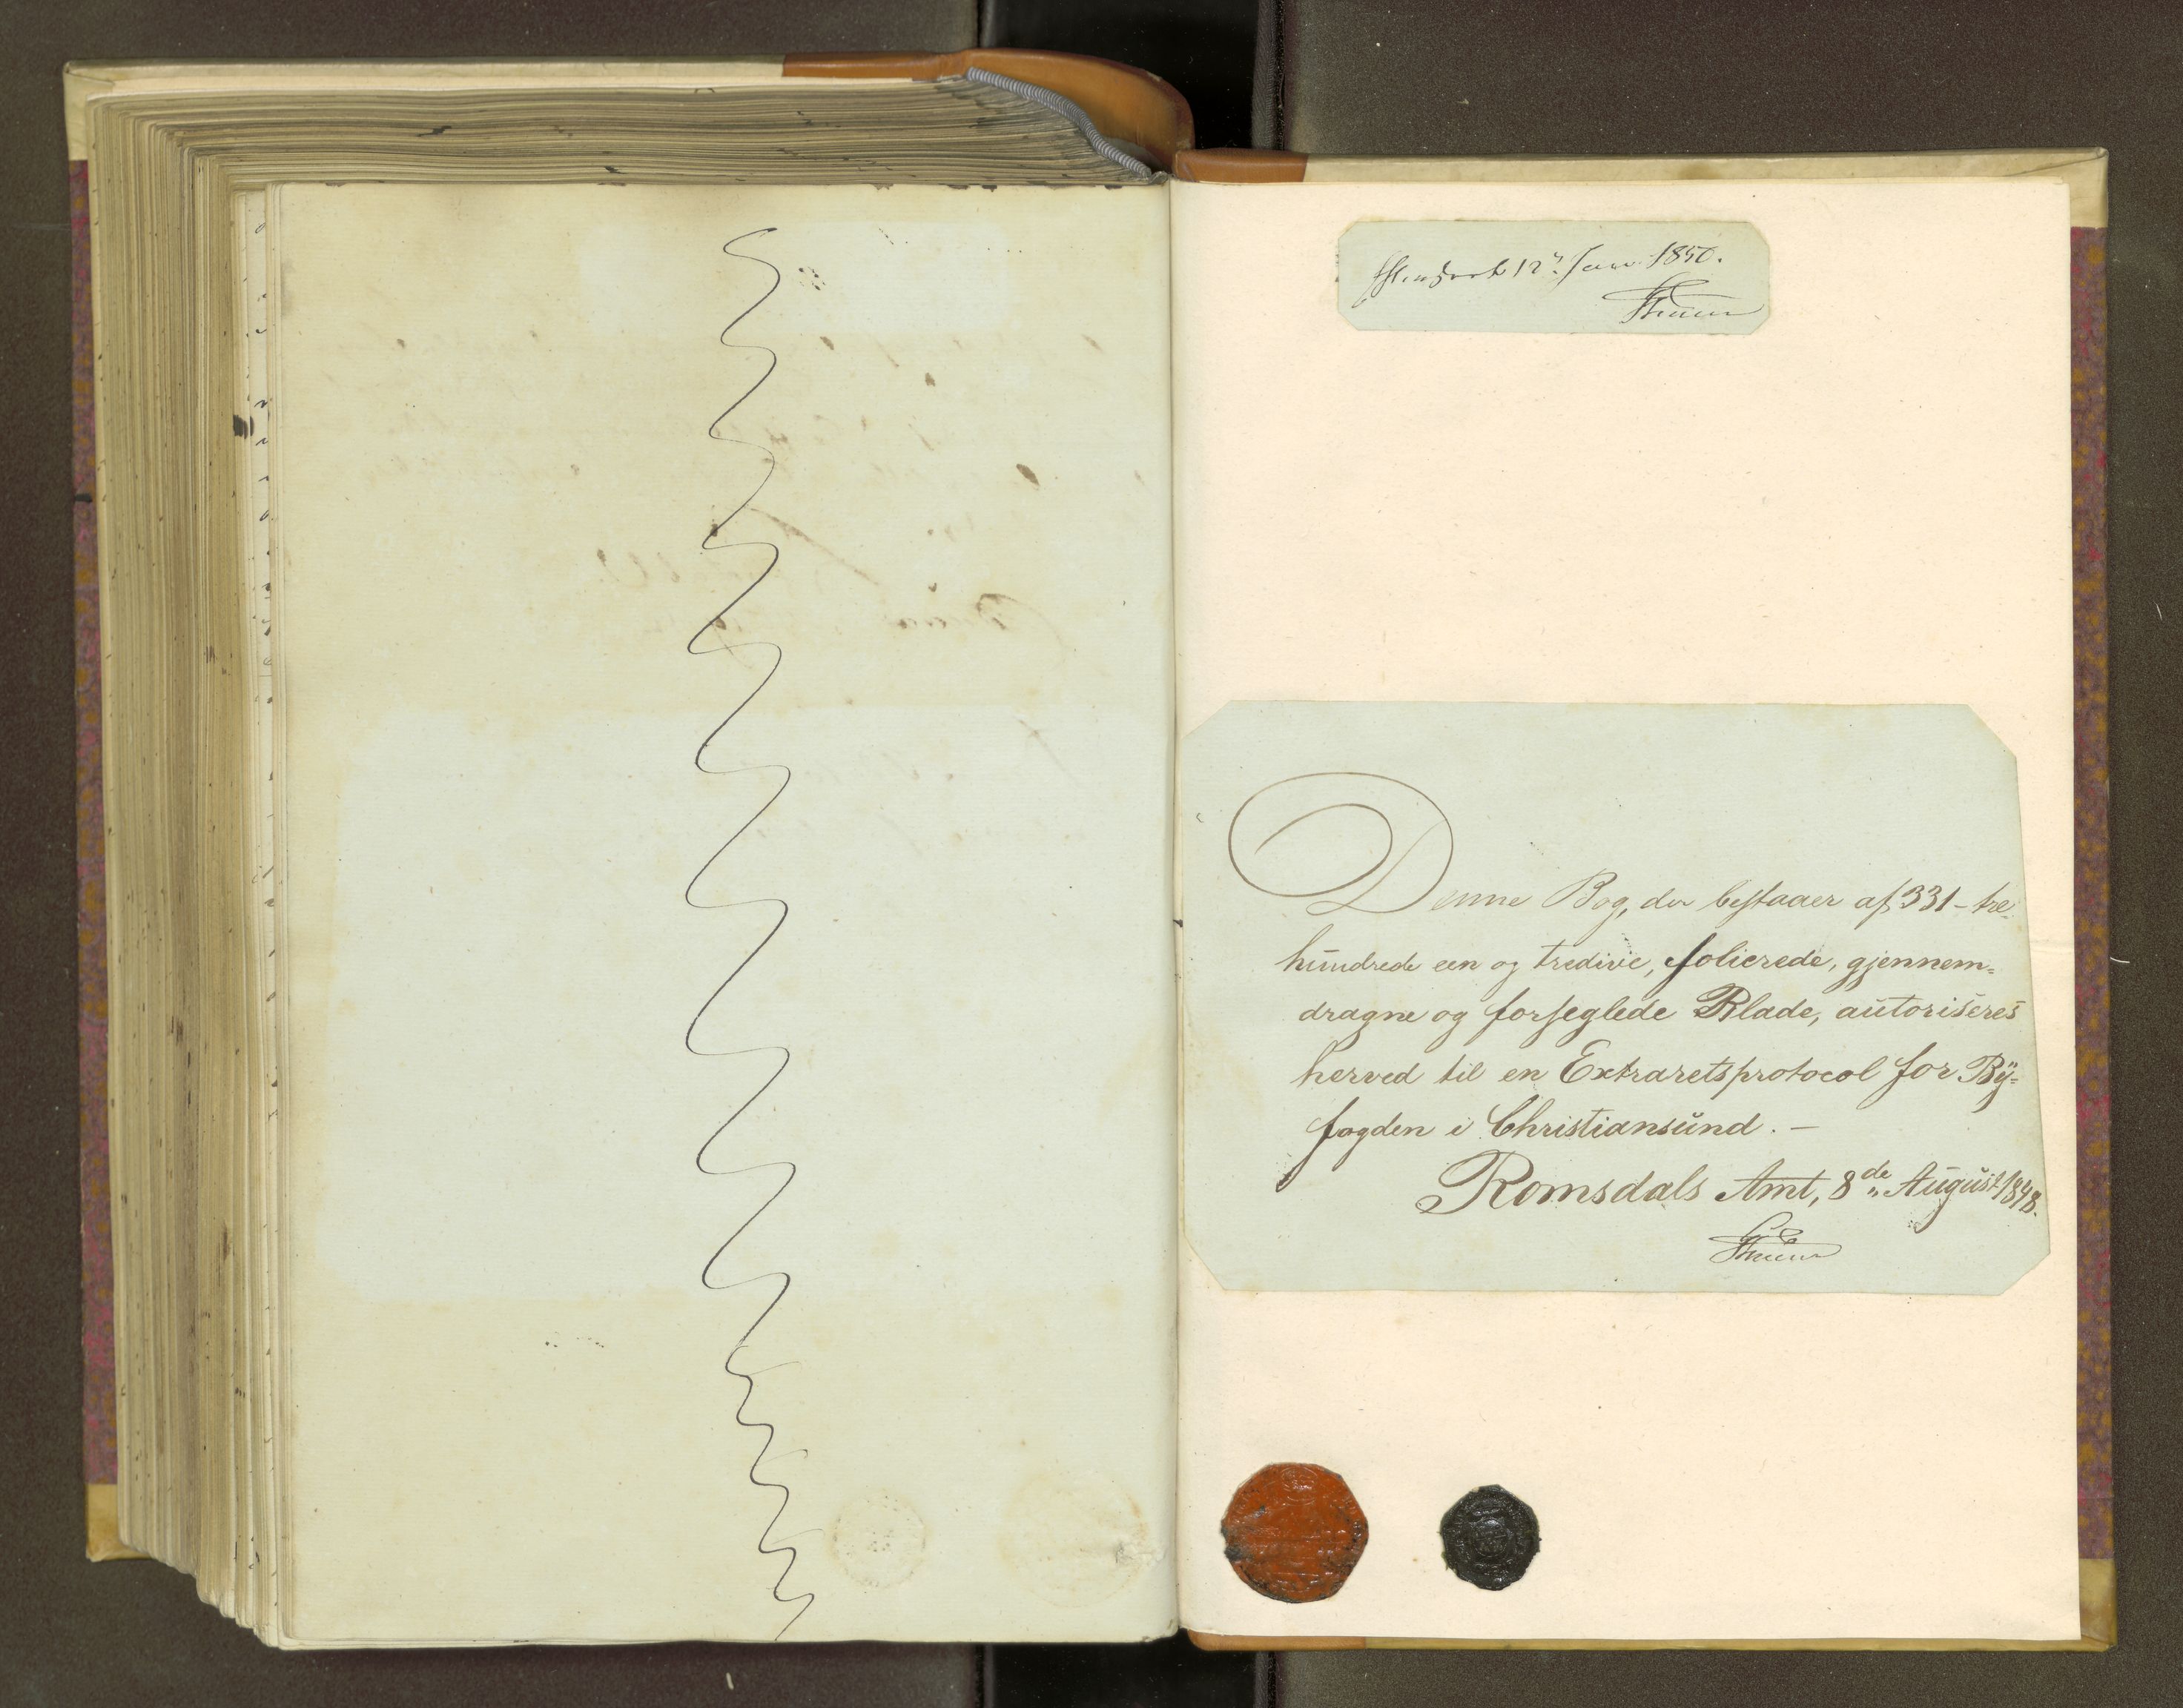 12 Jan. 1850.
Thesen
Denne Bog, der bestaaer af 331 - tre
hundrede een og tredive, folierede, gjennem-
dragne og forseglede Blade, autoriseres
herved til en Extraretsprotocol for By-
fogden i Christiansund. -
Romsdals Amt, 8de August 1848.